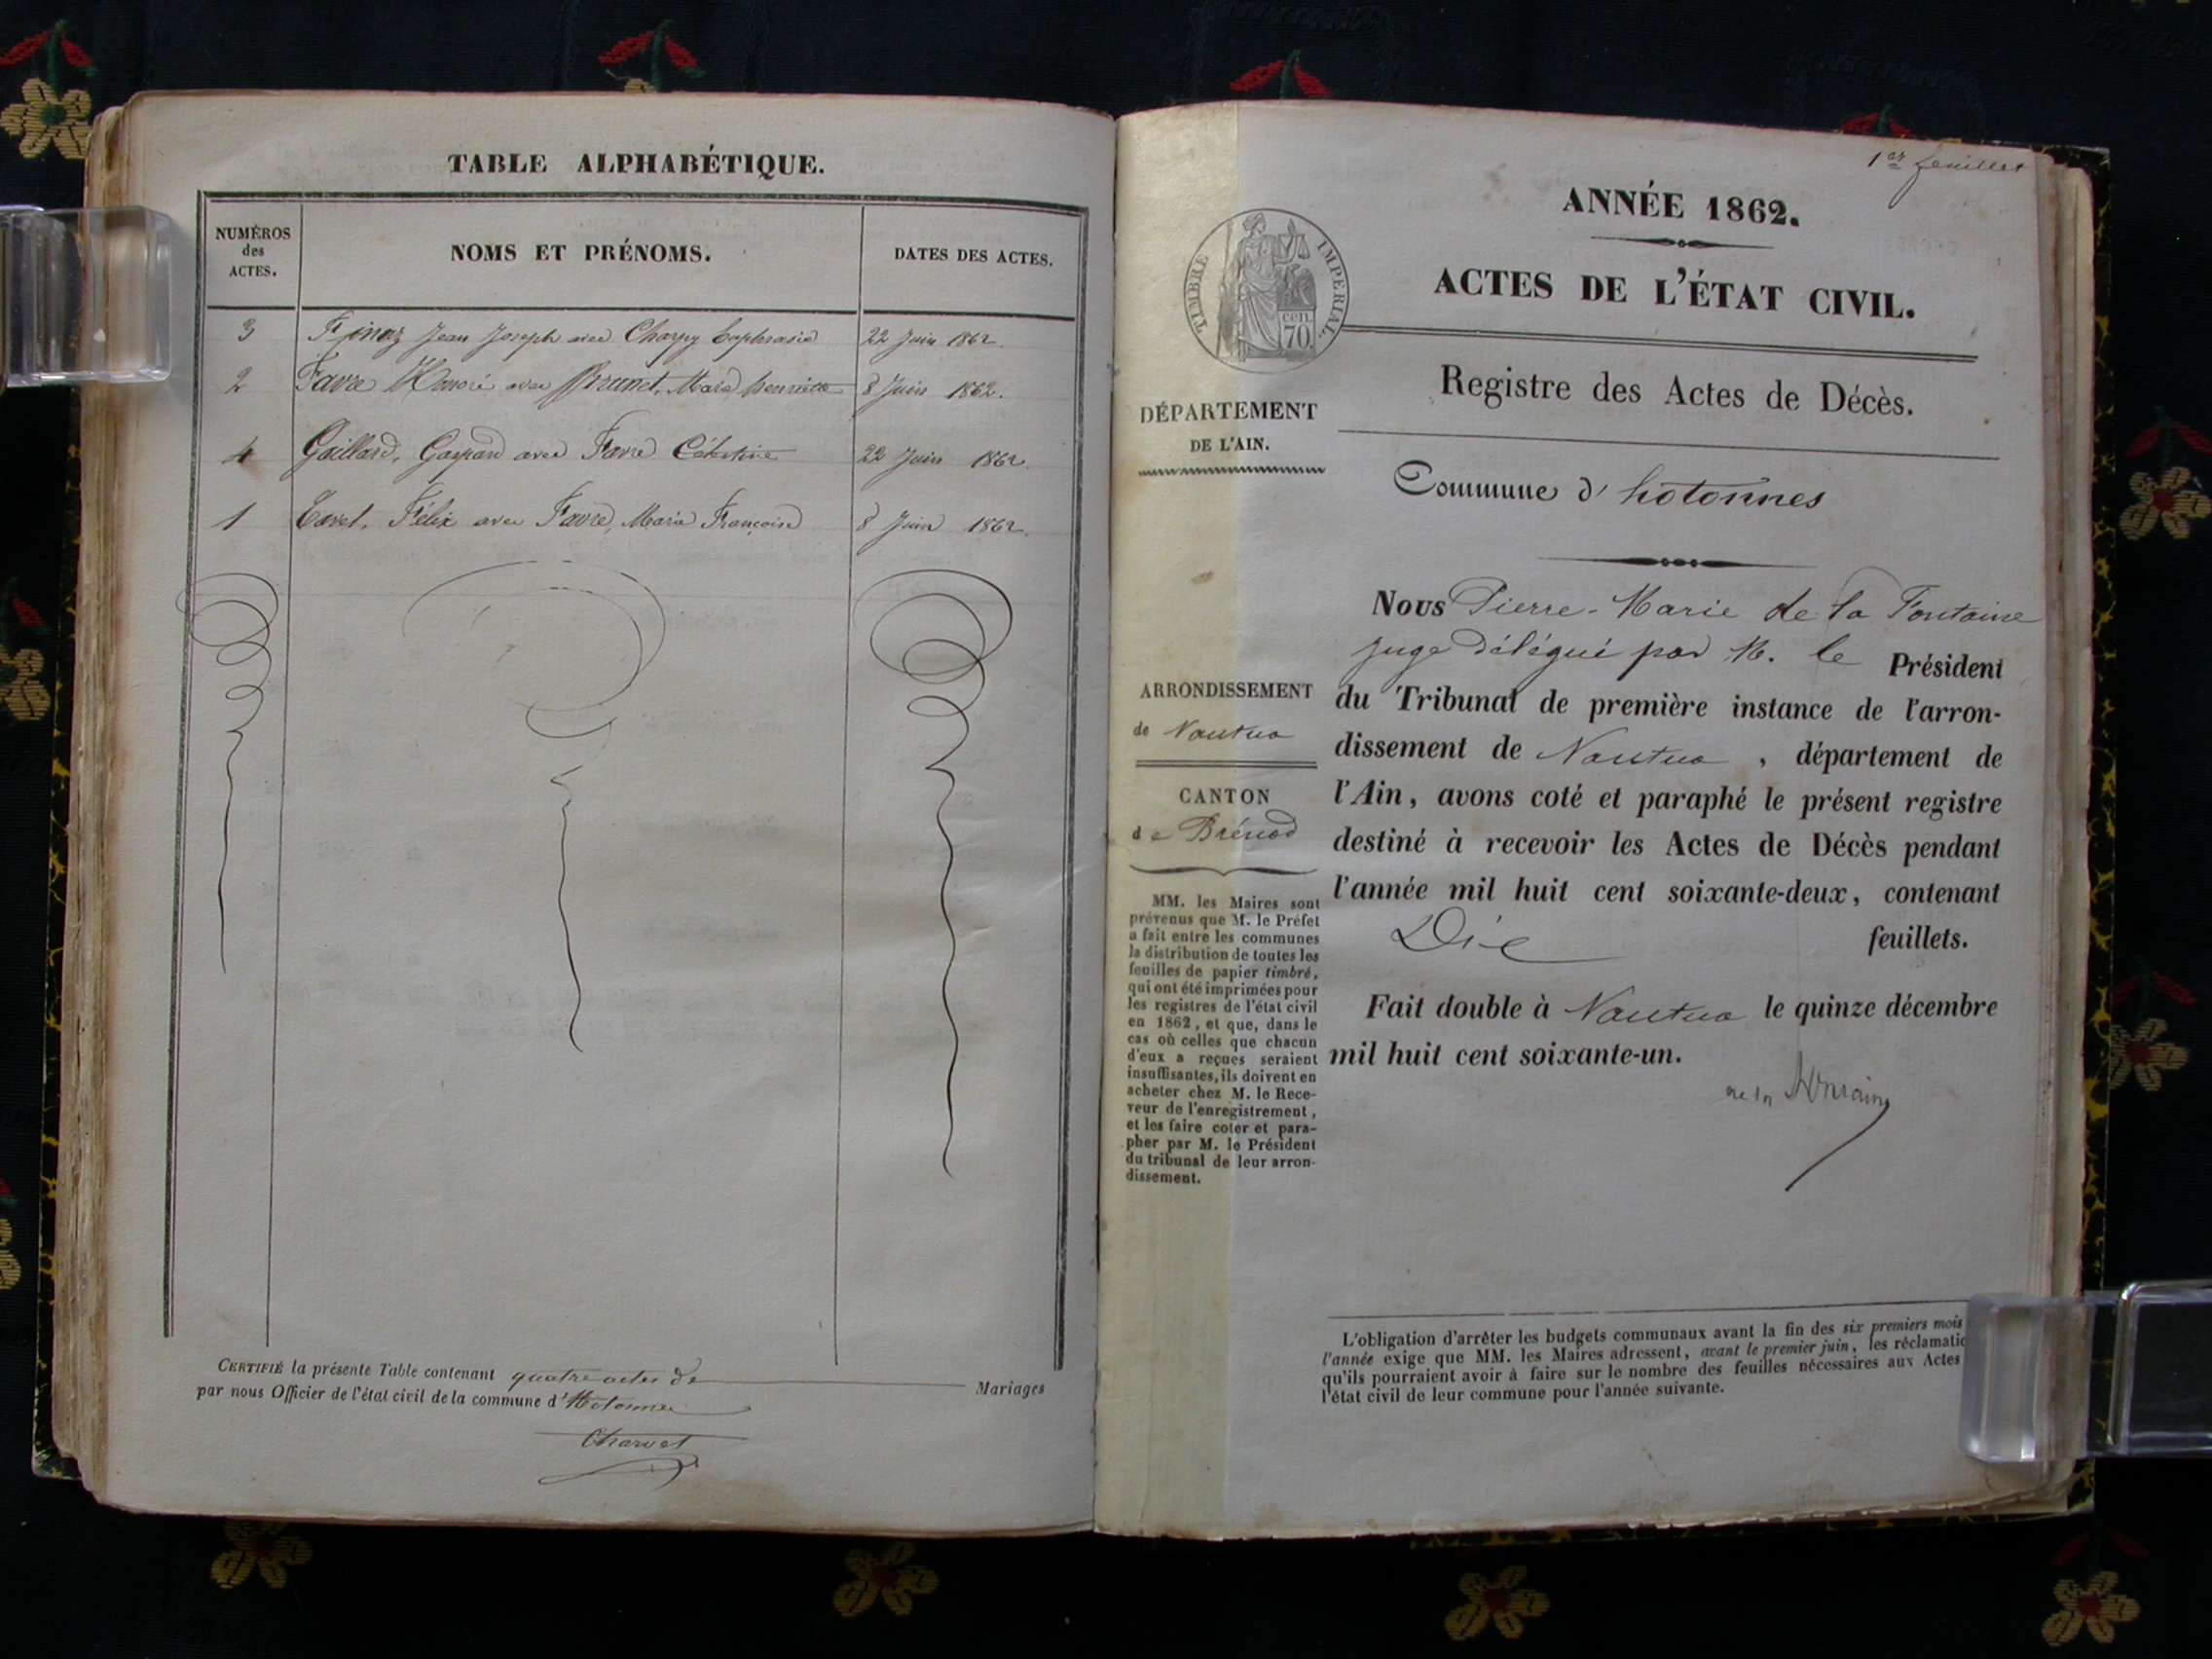 TABLE ALPHABÉTIQUE.
NUMÉROS
des
ACTES.
NOMS ET PRÉNOMS.
DATES DES ACTES.
3 Finaz Jean Joseph avec Charpy Euphrasie 22 Juin 1862.
2 Favre Honoré avec Brunet, Marie henriette 8 Juin 1862.
4 Gaillard, Gaspard avec Favre Célestine 22 Juin 1862.
1 Tavel, Félix avec Favre, Marie Françoise 8 Juin 1862.
CERTIFIÉ la présente Table contenant quatre actes de Mariages
par nous Officier de l'état civil de la commune d'Hotonnes
Charvet
1er feuillet
ANNÉE 1862.
TIMBRE IMPÉRIAL.
cen.
70.
ACTES DE L'ÉTAT CIVIL.
Registre des Actes de Décès.
DÉPARTEMENT
DE L'AIN.
Commune d'hotonnes
ARRONDISSEMENT
de Nantua
CANTON
de Brénod
MM. les Maires sont
prévenus que M. le Préfet
a fait entre les communes
la distribution de toutes les
feuilles de papier timbré,
qui ont été imprimées pour
les registres de l'état civil
en 1862, et que, dans le
cas où celles que chacun
d'eux a reçues seraient
insuffisantes, ils doivent en
acheter chez M. le Rece-
veur de l'enregistrement,
et les faire coter et para-
pher par M. le Président
du tribunal de leur arron-
dissement.
Nous Pierre-Marie de la Fontaine
juge délégué par M. le Président
du Tribunal de première instance de l'arron-
dissement de Nantua, département de
l'Ain, avons coté et paraphé le présent registre
destiné à recevoir les Actes de Décès pendant
l'année mil huit cent soixante-deux, contenant
Dix feuillets.
Fait double à Nantua le quinze décembre
mil huit cent soixante-un.
L'obligation d'arrêter les budgets communaux avant la fin des six premiers mois
l'année exige que MM. les Maires adressent, avant le premier juin, les réclamatio
qu'ils pourraient avoir à faire sur le nombre des feuilles nécessaires aux Actes
l'état civil de leur commune pour l'année suivante.